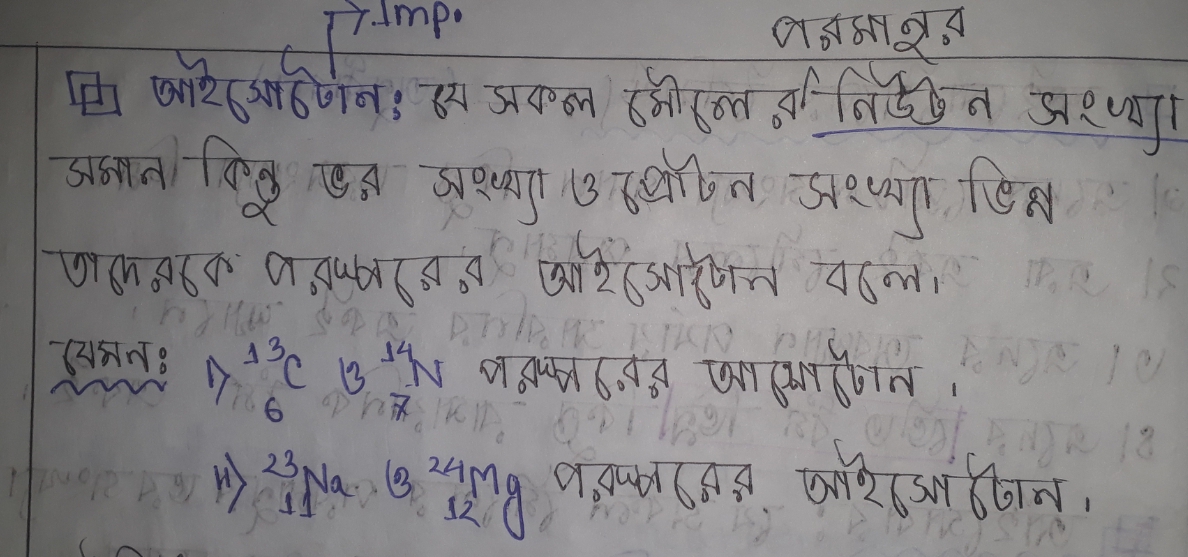 → Imp. পরমানুর
আইসোটোন: যে সকল মৌলের নিউটন সংখ্যা
সমান কিন্তু ভর সংখ্যা ও প্রোটন সংখ্যা ভিন্ন
তাদেরকে পরস্পরের আইসোটোন বলে।
যেমন: i) ¹³₆C ও ¹⁴₇N পরস্পরের আসোটোন।
ii) ²³₁₁Na ও ²⁴₁₂Mg পরস্পরের আইসোটোন।